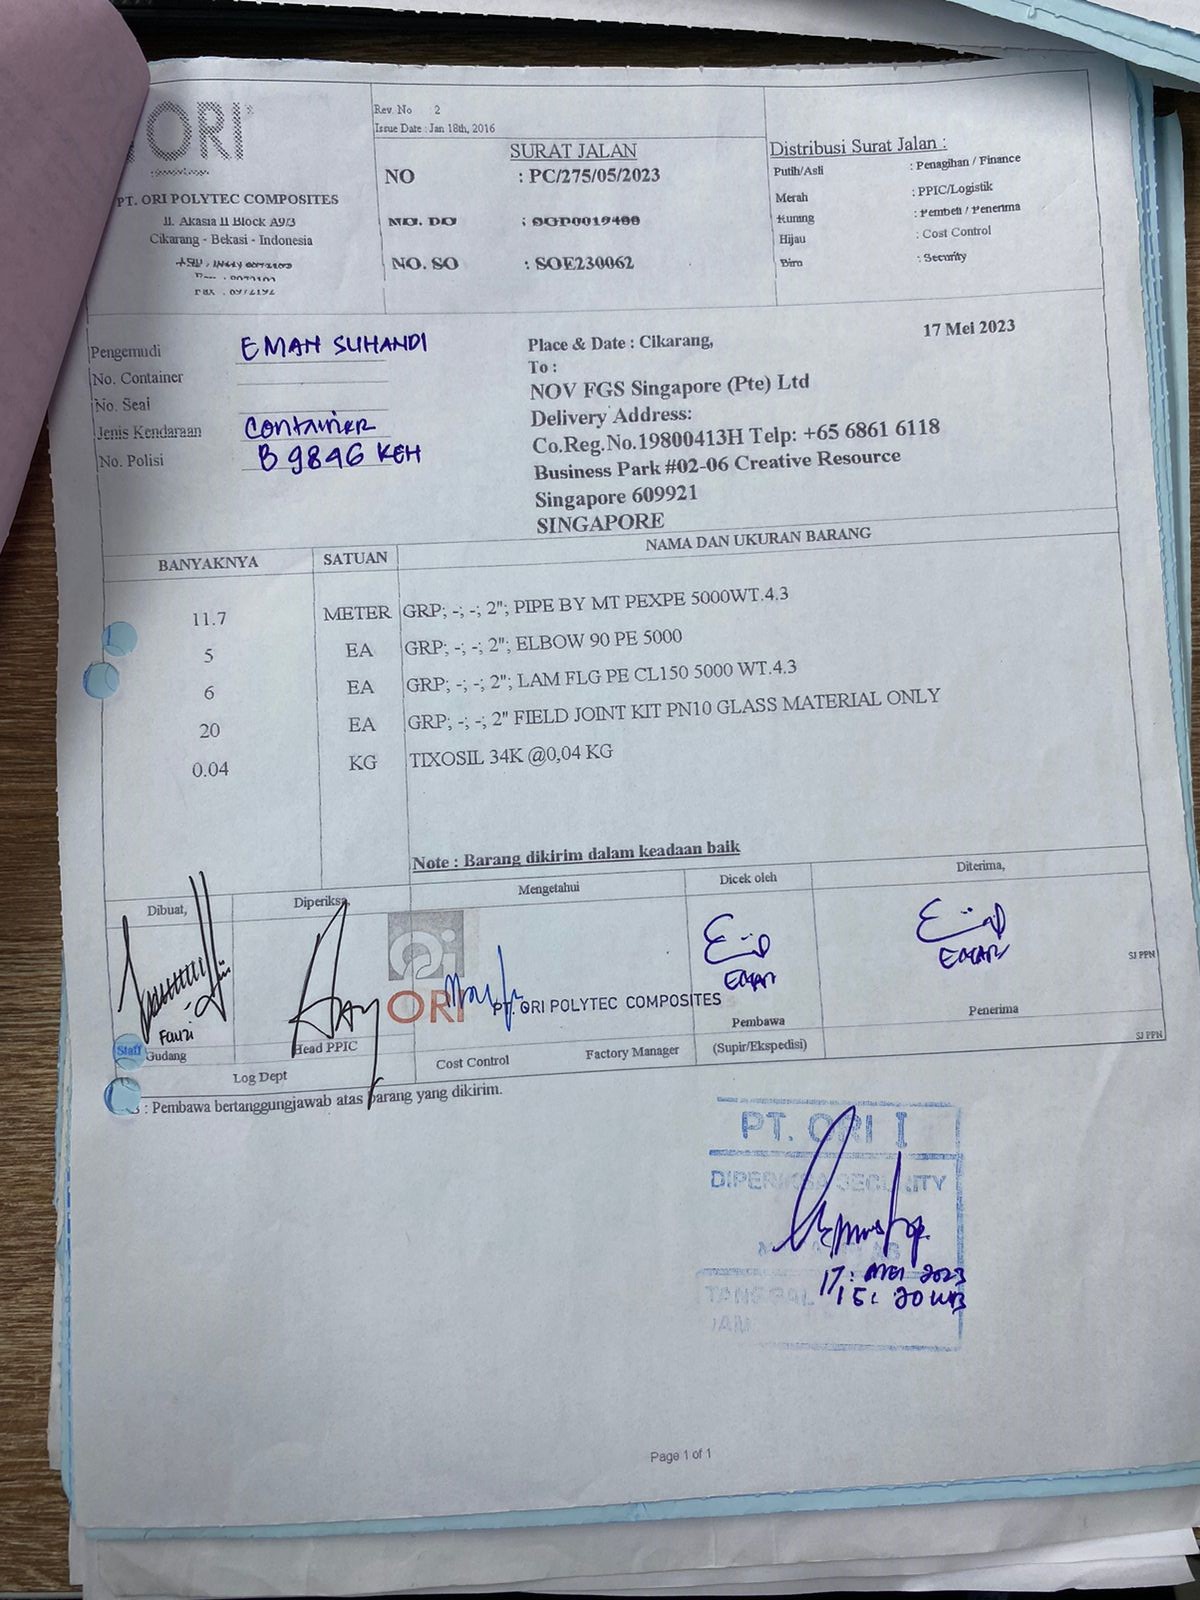 ORI
PT. ORI POLYTEC COMPOSITES
Jl. Akasia II Block A9/3
Cikarang - Bekasi - Indonesia
Rev. No 2
Issue Date : Jan 18th, 2016
SURAT JALAN
NO : PC/275/05/2023
NO. DO
NO. SO : SOE230062
Distribusi Surat Jalan :
Putih/Asli : Penagihan / Finance
Merah : PPIC/Logistik
Kuning : Pembeli / Penerima
Hijau : Cost Control
Biru : Security
Pengemudi EMAN SUHANDI
No. Container
No. Seal
Jenis Kendaraan Container
No. Polisi B 9846 KEH
Place & Date : Cikarang, 17 Mei 2023
To :
NOV FGS Singapore (Pte) Ltd
Delivery Address:
Co.Reg.No.19800413H Telp: +65 6861 6118
Business Park #02-06 Creative Resource
Singapore 609921
SINGAPORE
BANYAKNYA SATUAN NAMA DAN UKURAN BARANG
11.7 METER GRP; -; -; 2"; PIPE BY MT PEXPE 5000WT.4.3
5 EA GRP; -; -; 2"; ELBOW 90 PE 5000
6 EA GRP; -; -; 2"; LAM FLG PE CL150 5000 WT.4.3
20 EA GRP; -; -; 2" FIELD JOINT KIT PN10 GLASS MATERIAL ONLY
0.04 KG TIXOSIL 34K @0,04 KG
Note : Barang dikirim dalam keadaan baik
Dibuat, Diperiksa, Mengetahui Dicek oleh Diterima,
Fauzi
EMAN
EMAN
ORI PT. ORI POLYTEC COMPOSITES
SJ PPN
Staff Gudang Head PPIC Cost Control Factory Manager Pembawa Penerima
(Supir/Ekspedisi)
SJ PPN
Log Dept
: Pembawa bertanggungjawab atas barang yang dikirim.
PT. ORI
DIPERIKSA SECURITY
17 : MEI 2023
TANGGAL 15: 20 WIB
JAM
Page 1 of 1